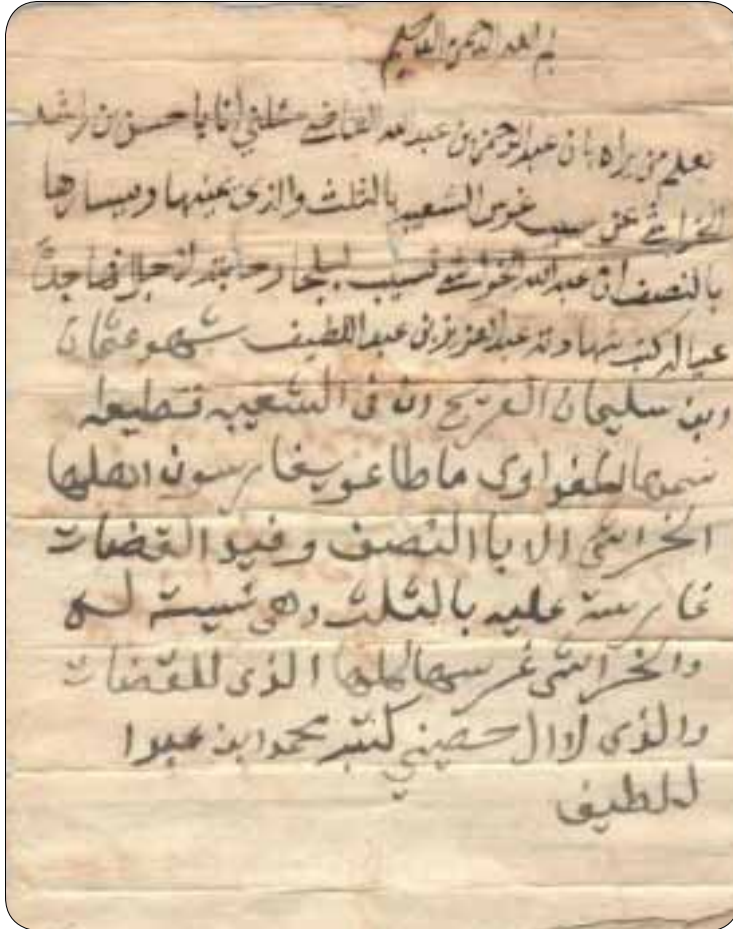 بسم الله الرحمن الرحيم
يعلم من يراه بان عبدالرحمن بن عبدالله القاضي سئلني انا يا حسن بن راشد
الخراشي عن سبب غرس الشعيبه بالثلث والذي عينها ويسارها
بالنصف ان عبدالله الخراشي
شهادته عبدالعزيز بن عبداللطيف شهد عثمان
ابن سليمان الفريح ان في الشعيبه قطيعه
ما طاعو يغارسون اهلها
الخراشي الا باالنصف وفيد القضات
غارسه عليه بالثلث وهي
والخراشي غرسها كلها الذي للقضات
والذي لاال حصيني كتبه محمد ابن عبدا
للطيف